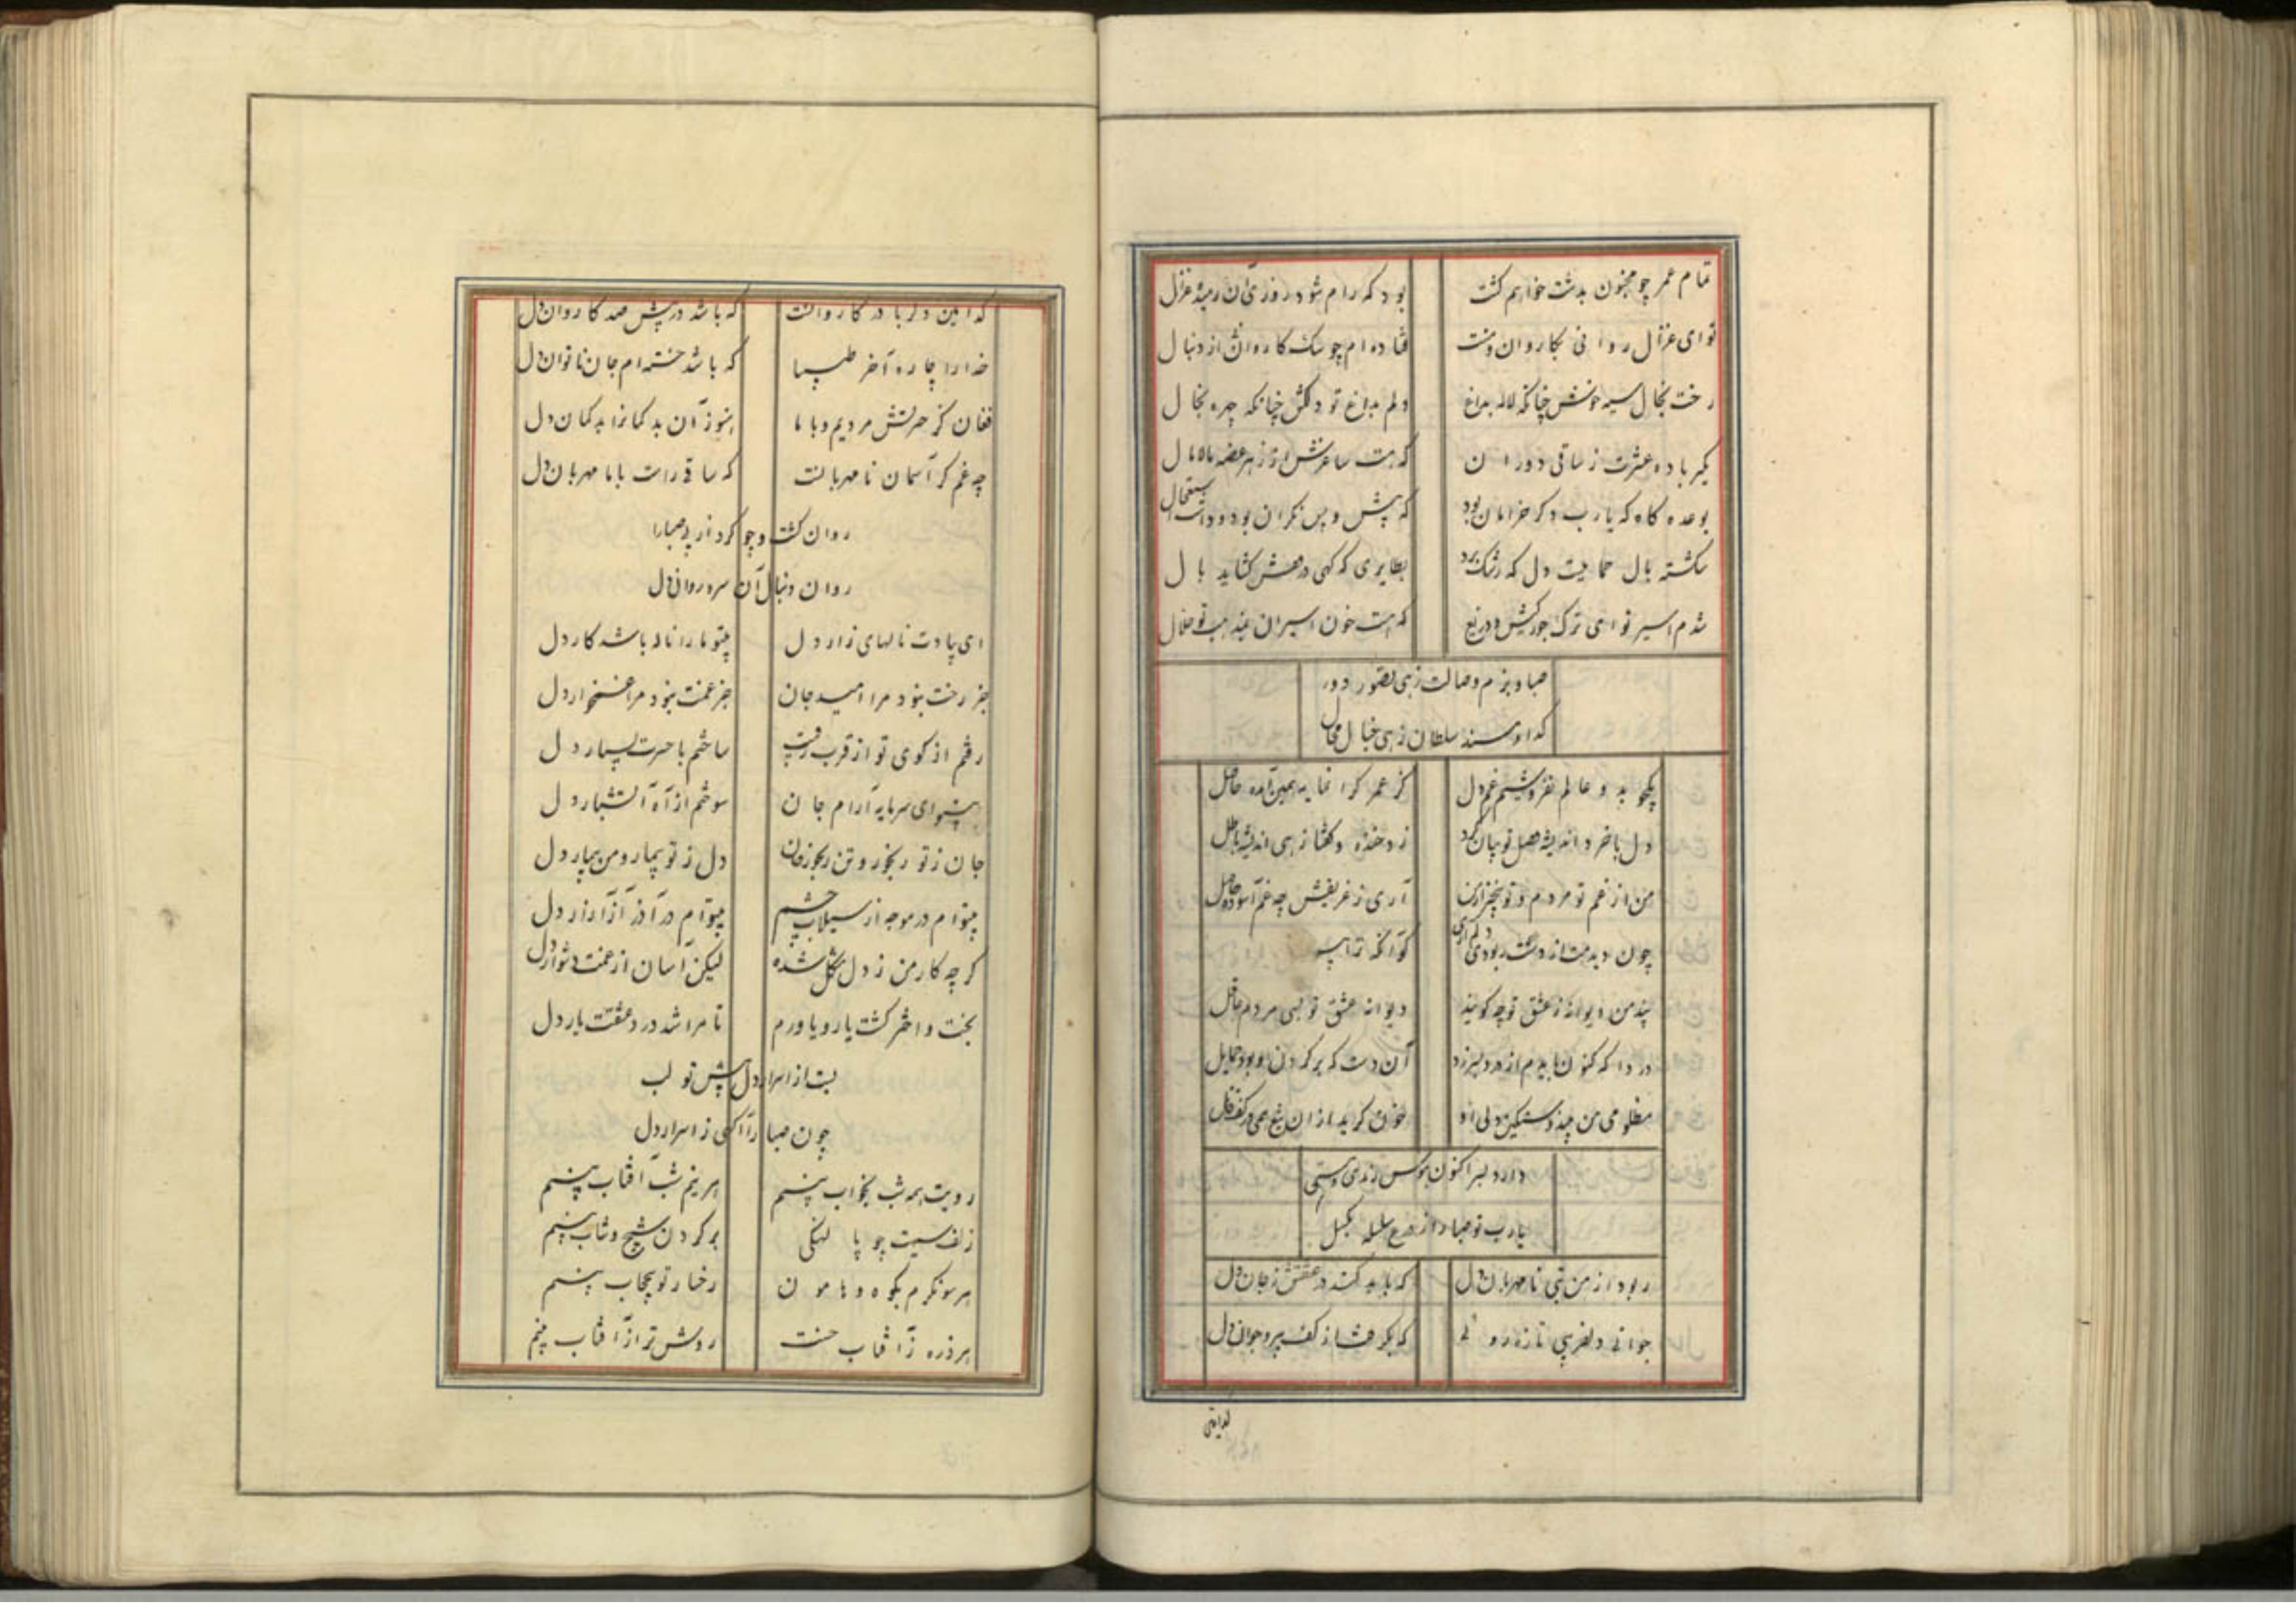 تمام عمر چو مجنون بدشت خواهم کشت بود که رام شود روزی آن رمیده غزال
تو ای غزال روانی بکاروان و منت فتاده ام چو سک کاروان از دنبال
رخت بخال سیه خوش چنانکه لاله بداغ دلم بداغ تو دلکش چنانکه چهره بخال
مکیر باده عشرت ز ساقی دوران که هست ساغرش از زهر غصه مالامال
بوعده کاه که یارب دکر خرامان بود که پیش و پس نکران بود و داشت استعجال
شکسته بال حمایت دل که رشک برد بطایری که کهی در قفس کشاید بال
شدم اسیر تو ای ترک جورکیش و دریغ که هست خون اسیران بمذهب تو حلال
صبا و بزم وصالت زهی تصور دور
کدا و مسند سلطان زهی خیال محال
یکجو بدو عالم نفروشیم غم دل کز عمر کرانمایه همین آمده حاصل
دل باخرد اندیشه وصل تو بیان کرد زد خنده و کفتا زهی اندیشه باطل
من از غم تو مردم و تو بیخبر از من آری ز غریقش چه غم آسوده ساحل
چون دید مت از دست ربودی دلم آری کو آنکه ترا بیند
پند من دیوانه ز عشق تو چه کویند دیوانه عشق تو بسی مردم عاقل
دردا که کنون باید م از درد بسر زد آن دست که بر کردن او بود حمایل
مظلومی من بین و مسکین دلی او خون کرید از آن تیغ همی در کف قاتل
دارد بسر اکنون هوس زهدی و مستی
یارب تو صبا را از ورع سلسله بکسل
ربود از من بتی نامهربان دل که باید کندن در عشقش ز جان دل
جوانی دلفریبی تازه روئی که بکرفت از کف پیر و جوان دل
کدامین
کدامین دلربا در کاروانست که باشد در پیش صد کاروان دل
خدا را چاره آخر طبیبا که باشد خسته ام جان ناتوان دل
فغان کز حسرتش مردیم و با ما هنوز آن بد کمانرا بدکمان دل
چه غم کر آسمان نامهربانست که ساقی راست با ما مهربان دل
روان کشت و چو کرد از پی صبا را
روان دنبال آن سرو روان دل
ای بیادت نالهای زار دل بیتو ما را ناله باشد کار دل
جز رخت نبود مرا امید جان جز غمت نبود مرا غمخوار دل
رفتم از کوی تو از قرب رقیب ساختم با حسرت بسیار دل
بیتو ای سرمایه آرام جان سوختم از آه آتشبار دل
جان ز تو رنجور و تن رنجور جان دل ز تو بیمار و من بیمار دل
بیتو ام در موجه از سیلاب چشم بیتو ام در آذر از آزار دل
کر چه کار من ز دل مشکل شده لیکن آسان از غمت دشوار دل
بخت و اختر کشت یار و یاورم تا مرا شد درد عشقت یار دل
بست از اسرار دل پیش تو لب
چون صبا را آکهی ز اسرار دل
رویت همه شب بخواب بینم هر نیم شب آفتاب بینم
زلف سیهت چو بر کردن شیخ و شاب بینم
هر سو نکرم بکوه و هامون رخسار تو بیحجاب بینم
هر ذره ز آفتاب حسنت روشن تر از آفتاب بینم